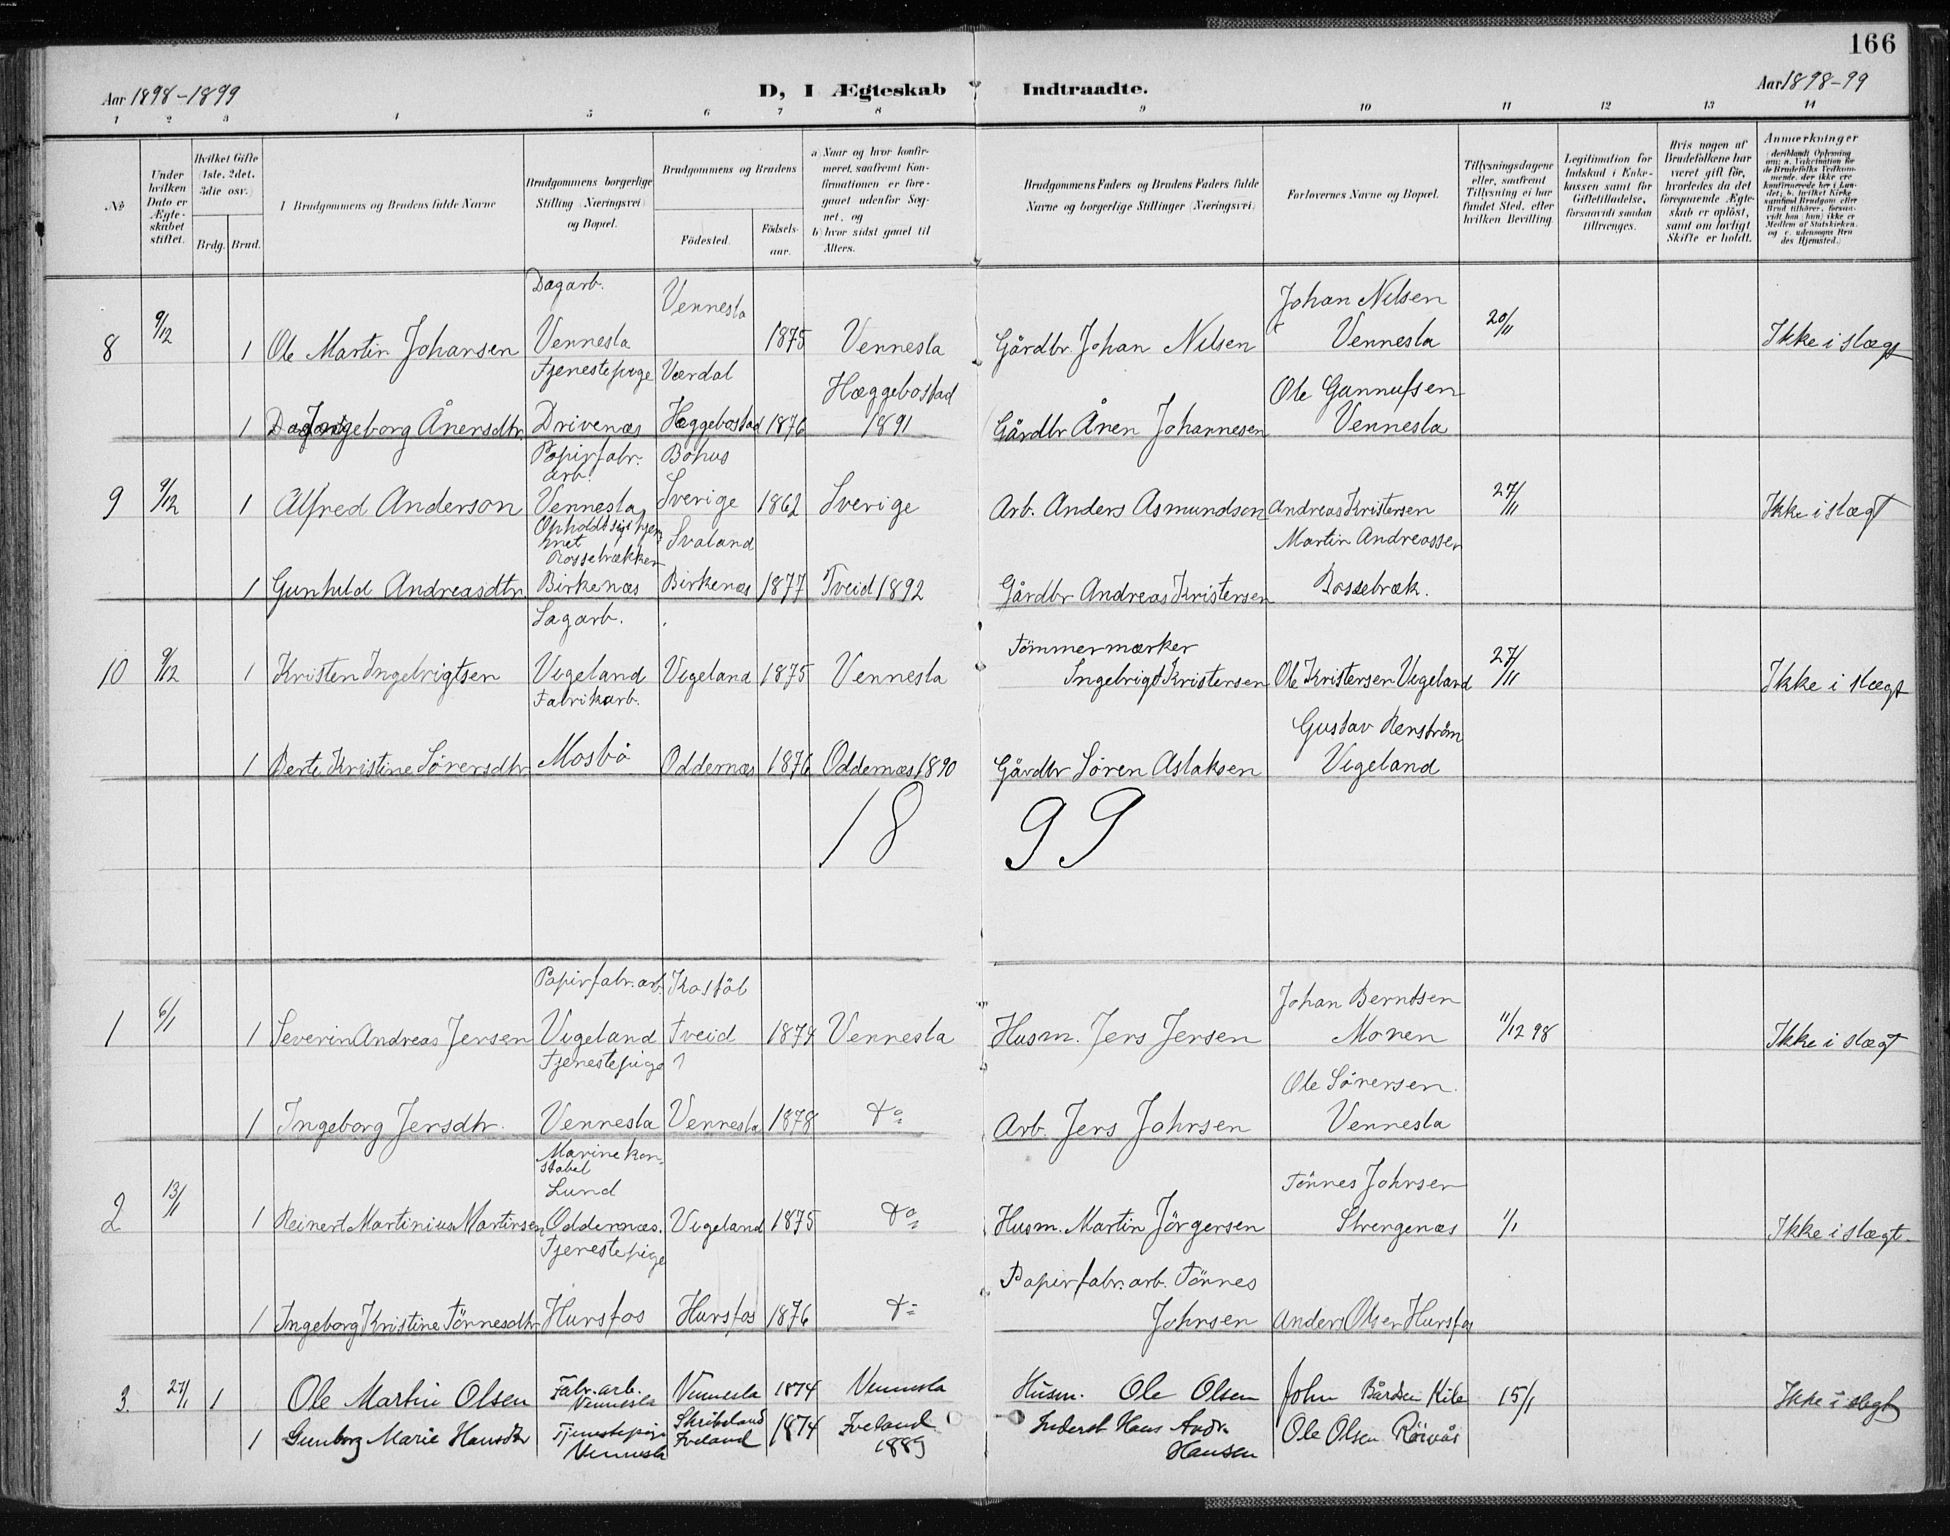 166
Aar 1898-1899
D, I Ægteskab Indtraadte.
Aar 1898-99
1 2 3 4 5 6 7 8 9 10 11 12 13 14
No
Under hvilken Dato er Ægteskabet stiftet.
Hvilket Gifte (1ste, 2det, 3die osv.)
Brdg. Brud.
I Brudgommens og Brudens fulde Navne
Brudgommens borgerlige Stilling (Næringsvei) og Bopæl.
Brudgommens og Brudens
Födested.
Födselsaar.
a) Naar og hvor konfirmeret, saafremt Konfirmationen er foregaaet udenfor Sognet, og
b) hvor sidst gaaet til Alters.
Brudgommens Faders og Brudens Faders fulde Navne og borgerlige Stillinger (Næringsvei)
Forlovernes Navne og Bopæl.
Tillysningsdagene eller, saafremt Tillysning ei har fundet Sted, efter hvilken Bevilling
Legitimation for Indskud i Enkekassen samt for Giftetilladelse, forsaavidt saadan tiltrænges.
Hvis nogen af Brudefolkene har været gift før, hvorledes da det foregaaende Ægteskab er oplöst, samt om lovligt Skifte er holdt.
Anmærkninger
Dagarb. Vennesla Johan Nilsen
8 9/12 1 Ole Martin Johansen Vennesla 1875 Vennesla Gårdbr. Johan Nilsen Vennesla 20/11 Ikke i slægt
Tjenestepige Værdal Hæggebostad Ole Gunnufsen
1 Ingeborg Ånensdtr. Drivenæs Hæggebostad 1876 1891 Gårdbr Ånen Johannesen Vennesla
Papirfabr. arb. Bohus
9 9/12 1 Alfred Anderson Vennesla Sverige 1862 Sverige Arb. Anders Asmundson Andreas Kristensen 27/11 Ikke i slægt
Svaland Martin Andreassen
1 Gunhild Andreasdtr Birkenæs Birkenæs 1877 Tveid 1892 Gårdbr Andreas Kristensen Rossebræk.
Sagarb. Tömmermærker
10 9/12 1 Kristen Ingebrigtsen Vigeland Vigeland 1875 Vennesla Ingebrigt Kristensen Ole Kristensen Vigeland 27/11 Ikke i slægt
Fabrikarb. Gustav Renström
1 Berte Kristine Sörensdtr Mosbö Oddernæs 1876 Oddernæs 1890 Gårdbr Sören Aslaksen Vigeland
1899
Papirfabr. arb. Kostöl Johan Berntsen
1 6/1 1 Severin Andreas Jensen Vigeland Tveid 1874 Vennesla Husm. Jens Jensen Monen 11/12 98 Ikke i slægt
Tjenestepige Ole Sörensen
1 Ingeborg Jensdtr. Vennesla Vennesla 1878 do Arb. Jens Johnsen Vennesla
Marinekonstabel
Lund Tönnes Johnsen
2 13/1 1 Reinert Martinius Martinsen Oddernæs. Vigeland 1875 do Husm. Martin Jörgensen Strengenæs 1/1 Ikke i slægt.
Tjenestepige Papirfabr. arb. Tönnes
1 Ingeborg Kristine Tönnesdtr Hunsfos Hunsfos 1876 do Johnsen Anders Olsen Hunsfos
3. 27/1 1 Ole Martin Olsen Fabr. arb. Vennesla Vennesla 1874 Vennesla Husm. Ole Olsen John Bårdsen Kile 15/1 Ikke i slægt
1 Gunborg Marie Hansdtr Tjenestepige Vennesla Skribeland Iveland 1874 Iveland 1889 Inderst Hans Andr. Hansen Ole Olsen